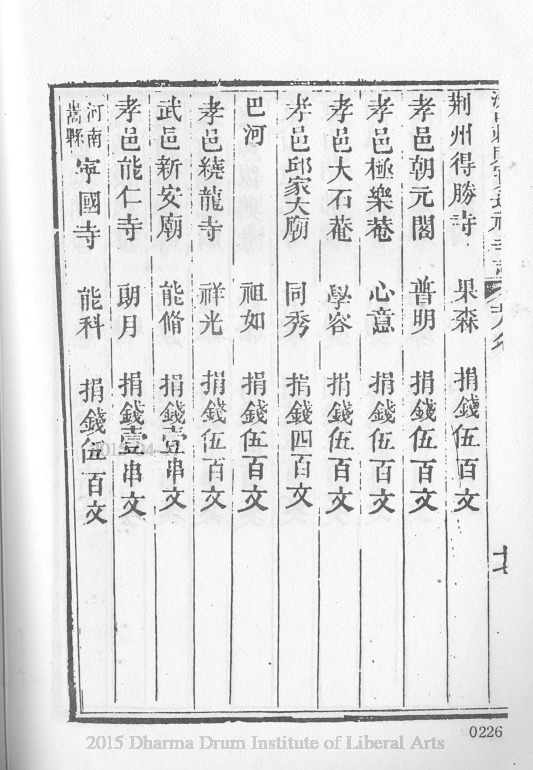 荆州得勝寺 果森 捐錢伍百文
孝邑朝元閣 普明 捐錢伍百文
孝邑極樂菴 心意 捐錢伍百文
孝邑大石菴 學容 捐錢伍百文
孝邑邱家大廟 同秀 捐錢四百文
巴河 祖如 捐錢伍百文
孝邑繞龍寺 祥光 捐錢伍百文
武邑新安廟 能脩 捐錢壹串文
孝邑能仁寺 朗月 捐錢壹串文
河南嵩縣寧國寺 能科 捐錢伍百文
0226
2015 Dharma Drum Institute of Liberal Arts